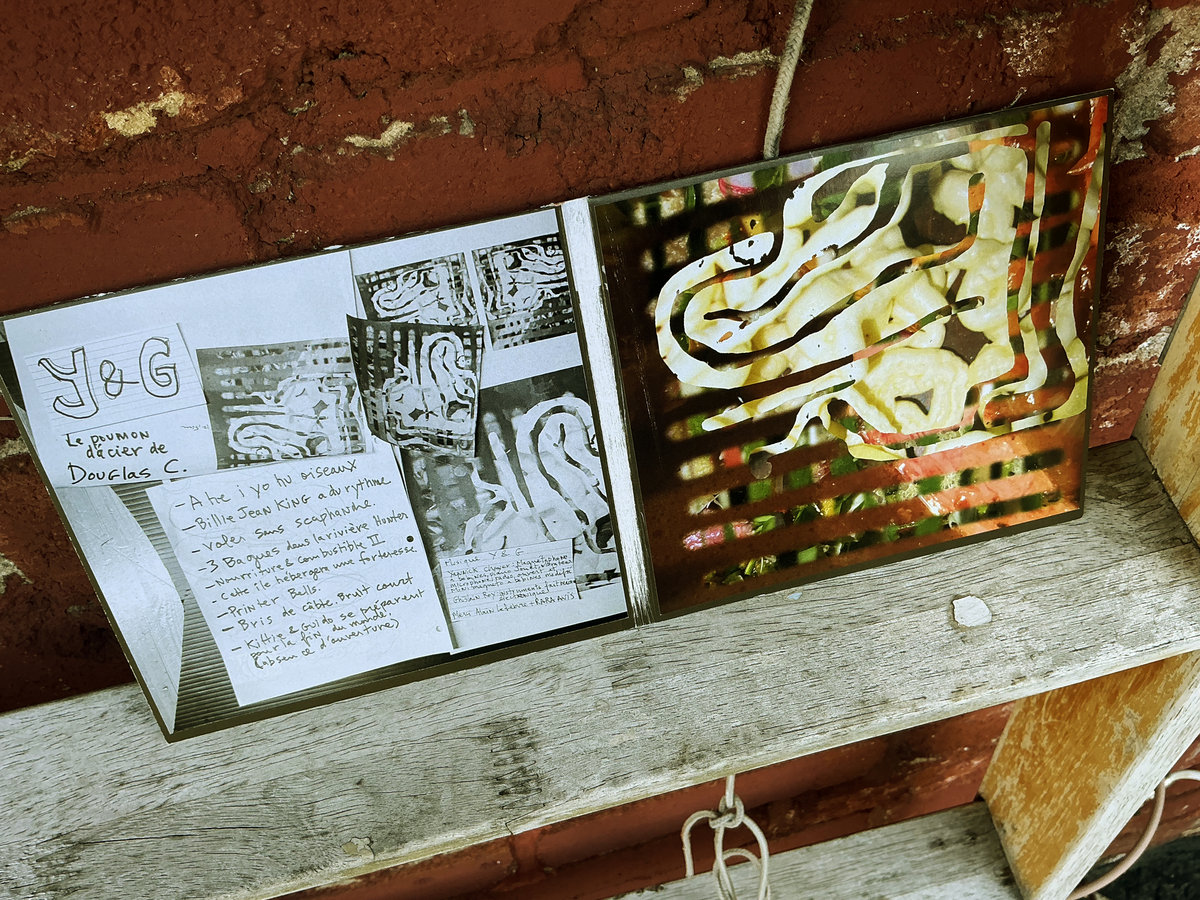 Y & G
Le poumon
d'acier de
Douglas C.
- A he i yo hu oiseaux
- Billie Jean KING a du rythme
- Voler sans scaphandre.
- 3 Bagues dans la rivière Hunter
- Nourriture & combustible II
- Cette île hébergera une forteresse.
- Printer Bells.
- Bris de câble. Bruit court
- Kittie & Guido se préparent
pour la fin du monde.
(absence d'ouverture)
Musique Y & G
Merci Alain Lefebvre + RARA AVIS